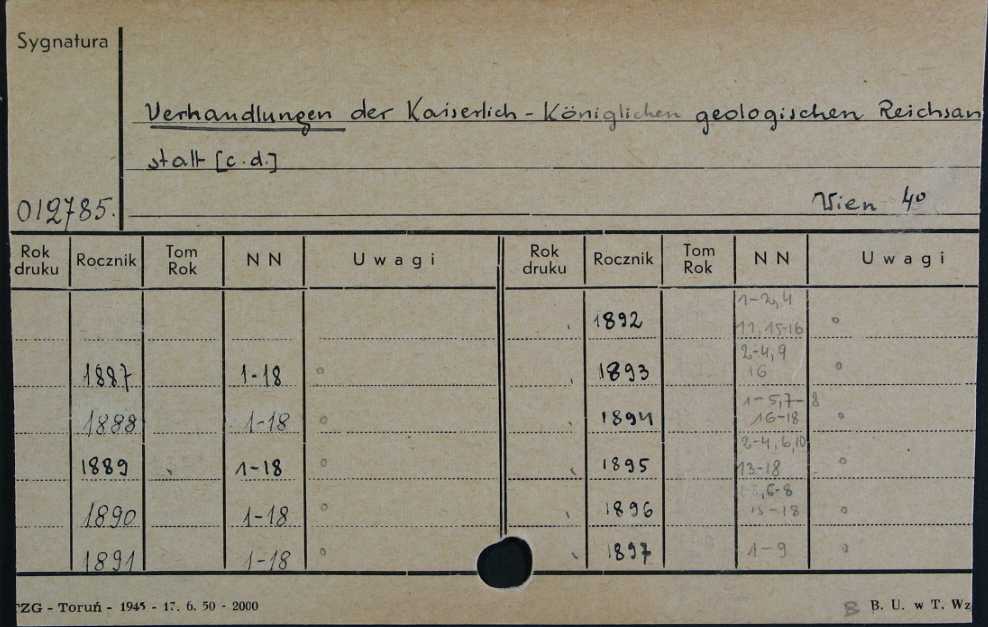 Sygnatura
Verhandlungen der Kaiserlich-Königlichen geologischen Reichsan
stalt [c.d.]
012785.
Wien 4º
Rok druku Rocznik Tom Rok NN Uwagi Rok druku Rocznik Tom Rok NN Uwagi
1892 1-2,4 11,15-16 °
1887 1-18 ° 1893 2-4,9 16 °
1888 1-18 ° 1894 1-5,7-8 16-18 °
1889 1-18 ° 1895 2-4,6,10 13-18 °
1890 1-18 ° 1896 ,6-8 15-18 °
1891 1-18 ° 1897 1-9 °
TZG - Toruń - 1945 - 17. 6. 50 - 2000
B B. U. w T. Wz